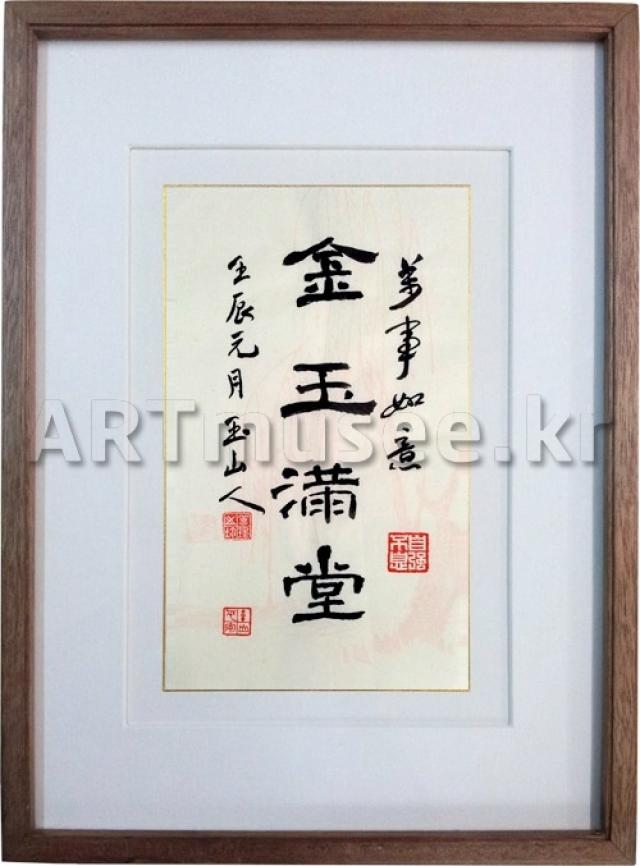 萬事如意
金玉滿堂
壬辰元月 玉山人
自強不息
ARTmusee.kr